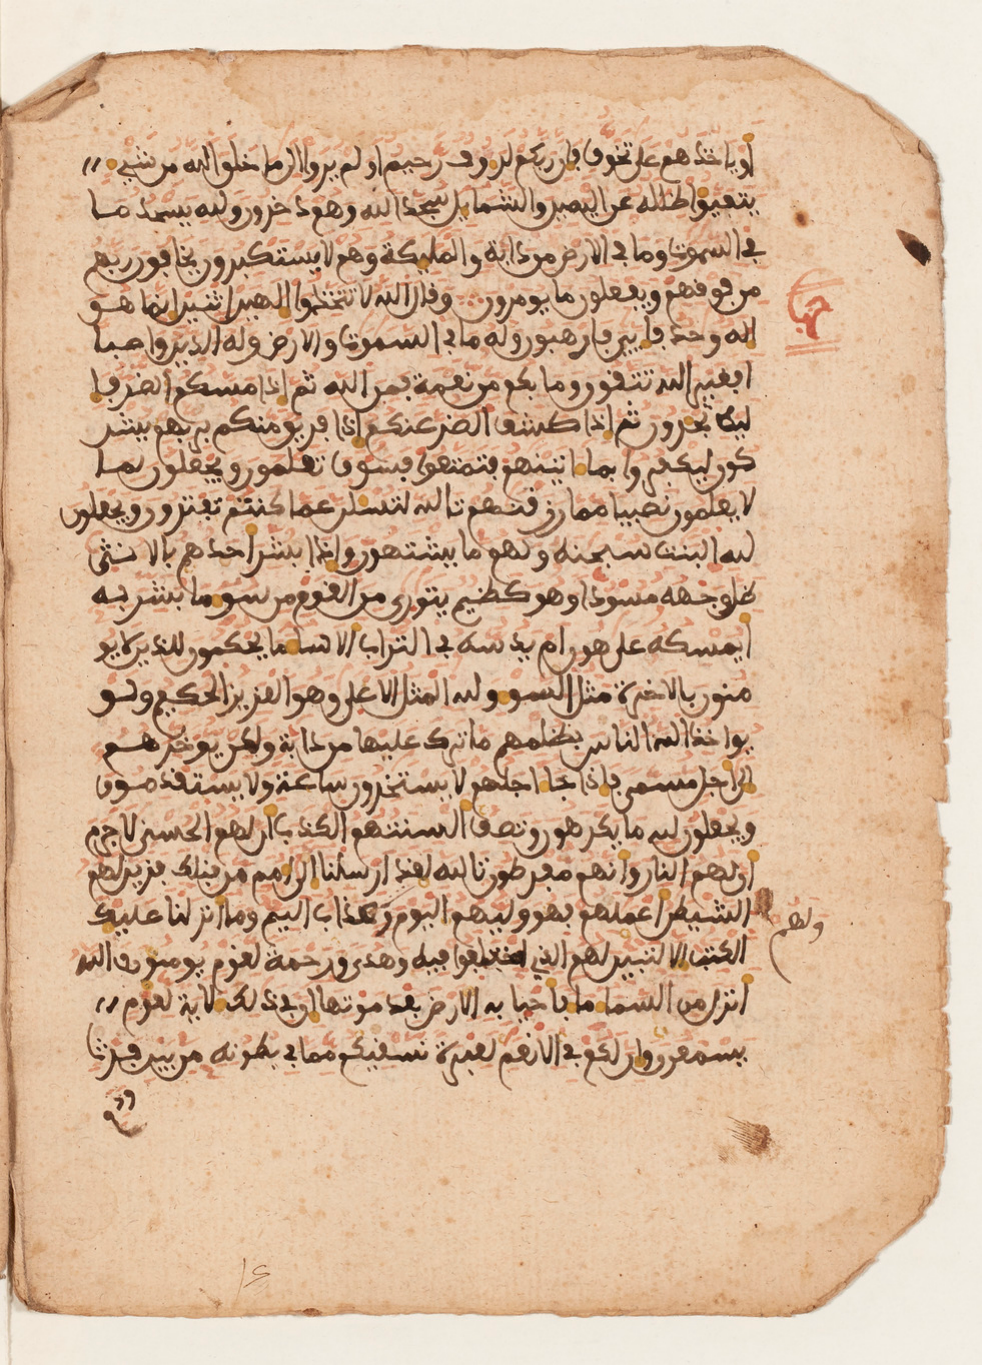 او ياخذهم على تخوف فان ربكم لروف رحيم او لم يروا الى ما خلق الله من شيء
يتفيوا ظلله عن اليمين والشمايل سجدا لله وهم دخرون ولله يسجد ما
في السموت وما في الارض من دابة والمليكة وهم لا يستكبرون يخافون ربهم
من فوقهم ويفعلون ما يومرون وقال الله لا تتخذوا الهين اثنين انما هو
اله وحد فايي فارهبون وله ما في السموت والارض وله الدين واصبا
افغير الله تتقون وما بكم من نعمة فمن الله ثم اذا مسكم الضر فا
ليه تجرون ثم اذا كشف الضر عنكم اذا فريق منكم بربهم يشر
كون ليكفروا بما اتينهم فتمتعوا فسوف تعلمون ويجعلون لما
لا يعلمون نصيبا مما رزقنهم تالله لتسلن عما كنتم تفترون ويجعلون
لله البنت سبحنه ولهم ما يشتهون واذا بشر احدهم بالانثى
ظل وجهه مسودا وهو كظيم يتورى من القوم من سو ما بشر به
ايمسكه على هون ام يدسه في التراب الا سا ما يحكمون للذين لا يو
منون بالاخرة مثل السو ولله المثل الاعلى وهو العزيز الحكيم ولو
يواخذ الله الناس بظلمهم ما ترك عليها من دابة ولكن يوخرهم
الى اجل مسمى فاذا جا اجلهم لا يستخرون ساعة ولا يستقدمون
ويجعلون لله ما يكرهون وتصف السنتهم الكذب ان لهم الحسنى لا جرم
ان لهم النار وانهم مفرطون تالله لقد ارسلنا الى امم من قبلك فزين لهم
الشيطن اعملهم فهو وليهم اليوم ولهم عذاب اليم وما انزلنا عليك
الكتب الا لتبين لهم الذي اختلفوا فيه وهدى ورحمة لقوم يومنون والله
انزل من السما ما فاحيا به الارض بعد موتها ان في ذلك لاية لقوم
يسمعون وان لكم في الانعم لعبرة نسقيكم مما في بطونه من بين فرث